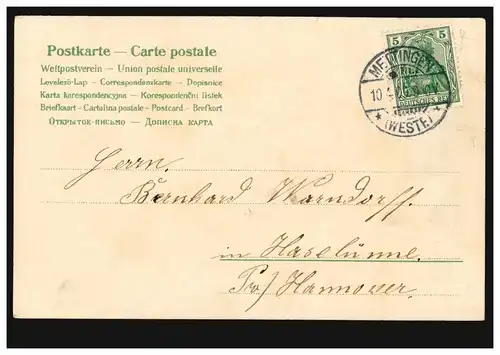 Postkarte — Carte postale
Weltpostverein — Union postale universelle
Levelező-Lap — Correspondenzkarte — Dopisnice
Karta korespondencyjna — Korespondenční lístek
Briefkaart — Cartolina postale — Postcard — Brefkort
Открытое письмо — Дописна карта
5 5
METTINGEN
10.
DEUTSCHES REICH
* (WESTF.) *
Herrn.
Bernhard Warndorff.
in Haselünne.
Prof Hannover.